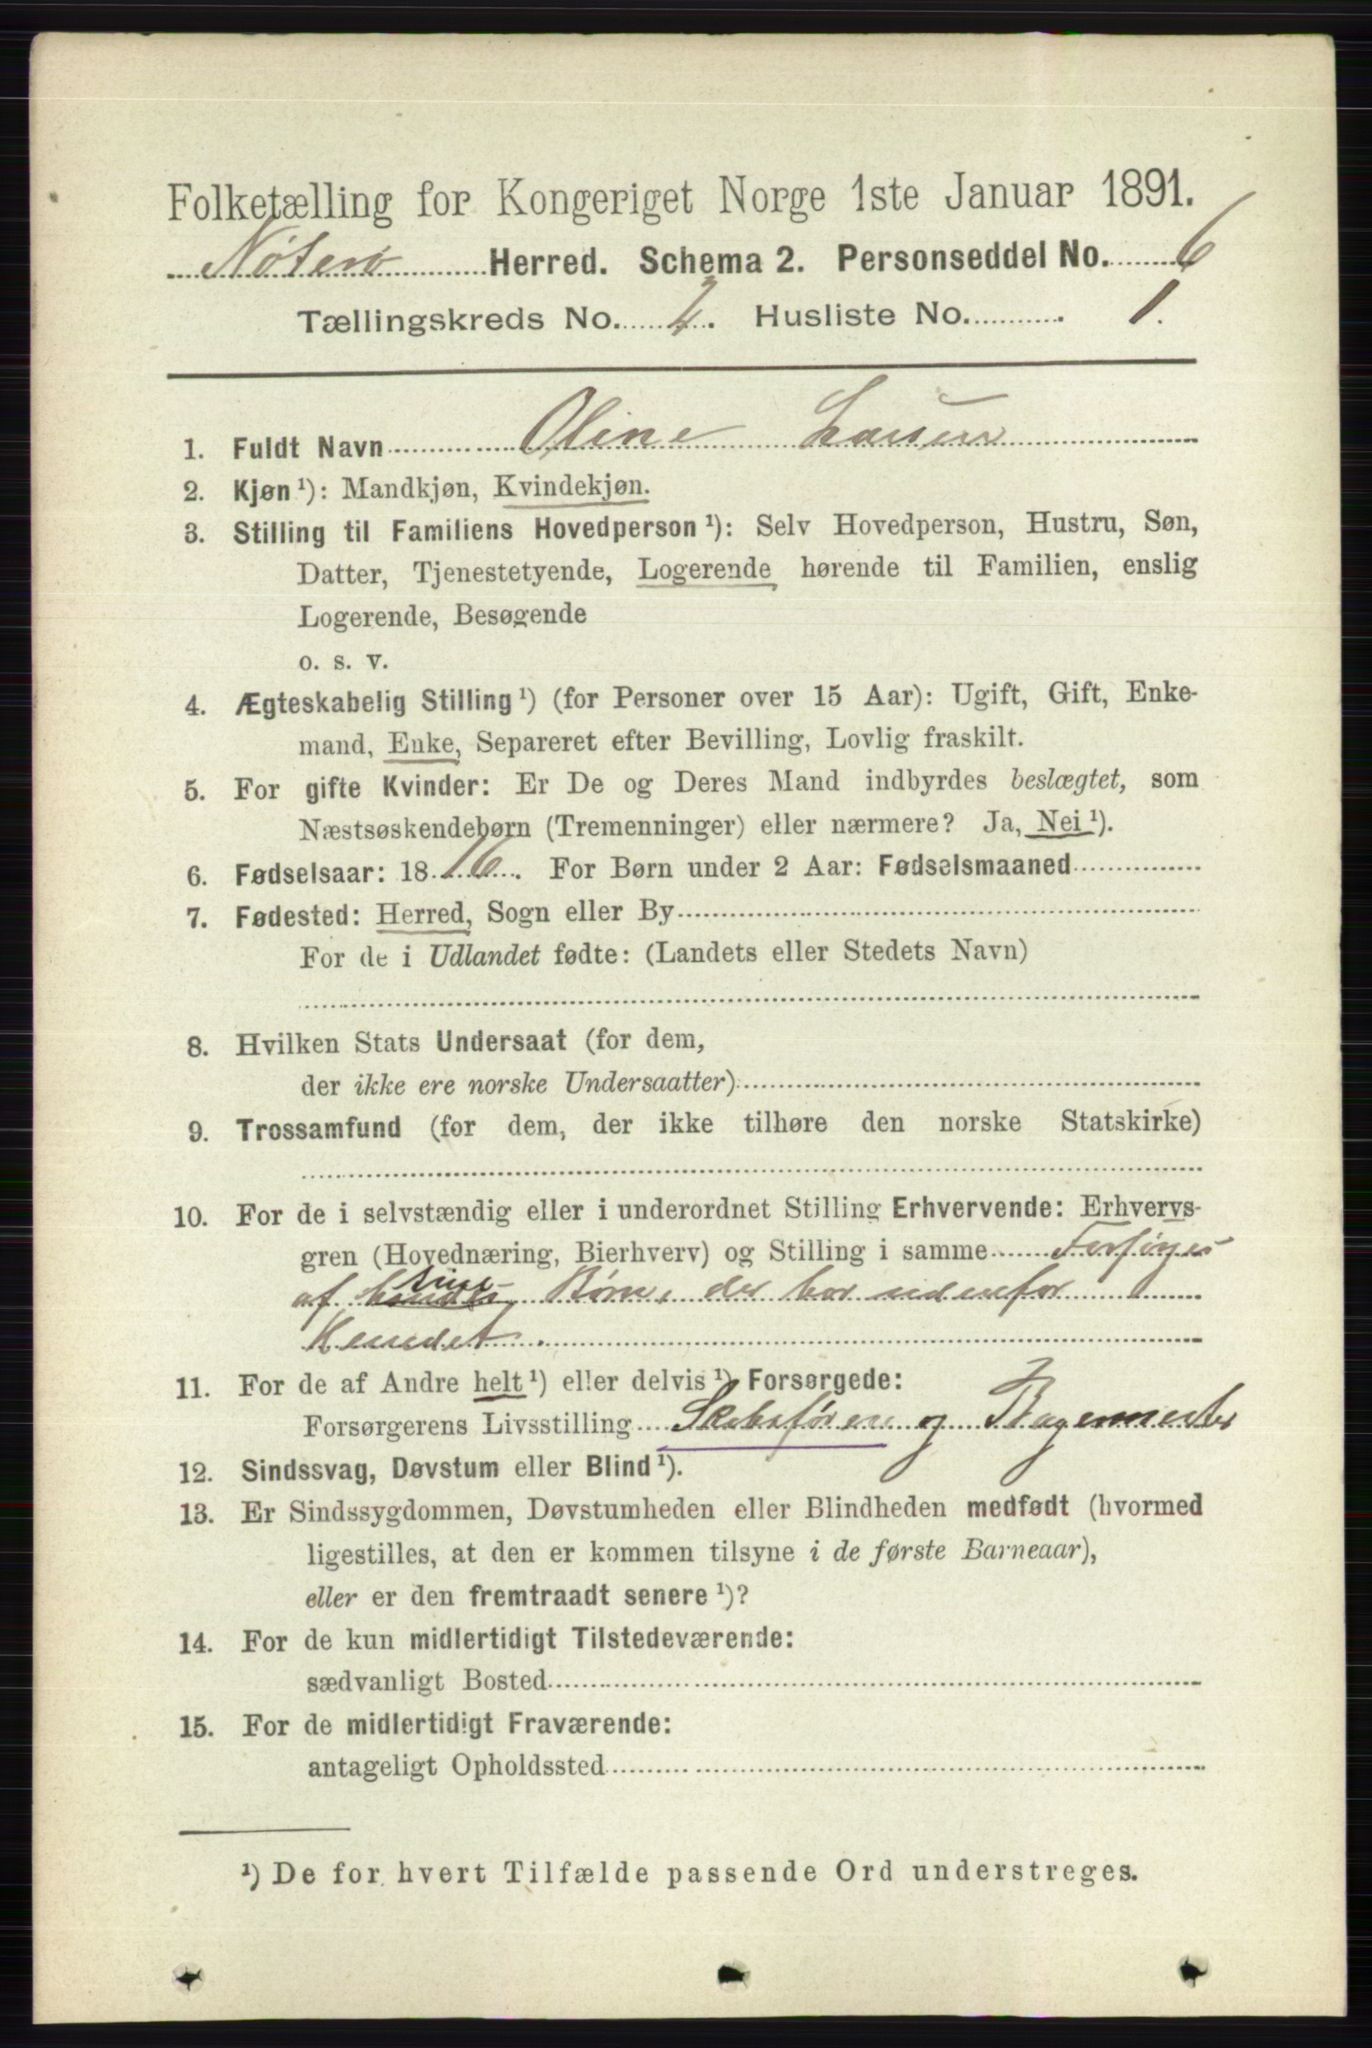 Folketælling for Kongeriget Norge 1ste Januar 1891.
Nøterø Herred. Schema 2. Personseddel No. 6
Tællingskreds No. 2. Husliste No. 1.
1. Fuldt Navn Oline Larsen
2. Kjøn ¹): Mandkjøn, Kvindekjøn.
3. Stilling til Familiens Hovedperson ¹): Selv Hovedperson, Hustru, Søn,
Datter, Tjenestetyende, Logerende hørende til Familien, enslig
Logerende, Besøgende
o. s. v.
4. Ægteskabelig Stilling ¹) (for Personer over 15 Aar): Ugift, Gift, Enke-
mand, Enke, Separeret efter Bevilling, Lovlig fraskilt.
5. For gifte Kvinder: Er De og Deres Mand indbyrdes beslægtet, som
Næstsøskendebørn (Tremenninger) eller nærmere? Ja, Nei ¹).
6. Fødselsaar: 1816. For Børn under 2 Aar: Fødselsmaaned
7. Fødested: Herred, Sogn eller By
For de i Udlandet fødte: (Landets eller Stedets Navn)
8. Hvilken Stats Undersaat (for dem,
der ikke ere norske Undersaatter)
9. Trossamfund (for dem, der ikke tilhøre den norske Statskirke)
10. For de i selvstændig eller i underordnet Stilling Erhvervende: Erhvervs-
gren (Hovednæring, Bierhverv) og Stilling i samme Forsørges
af sine Børn, der bor udenfor
11. For de af Andre helt ¹) eller delvis ¹) Forsørgede:
Forsørgerens Livsstilling Skibsfører og Bagermester
12. Sindssvag, Døvstum eller Blind ¹).
13. Er Sindssygdommen, Døvstumheden eller Blindheden medfødt (hvormed
ligestilles, at den er kommen tilsyne i de første Barneaar),
eller er den fremtraadt senere ¹)?
14. For de kun midlertidigt Tilstedeværende:
sædvanligt Bosted
15. For de midlertidigt Fraværende:
antageligt Opholdssted
¹) De for hvert Tilfælde passende Ord understreges.